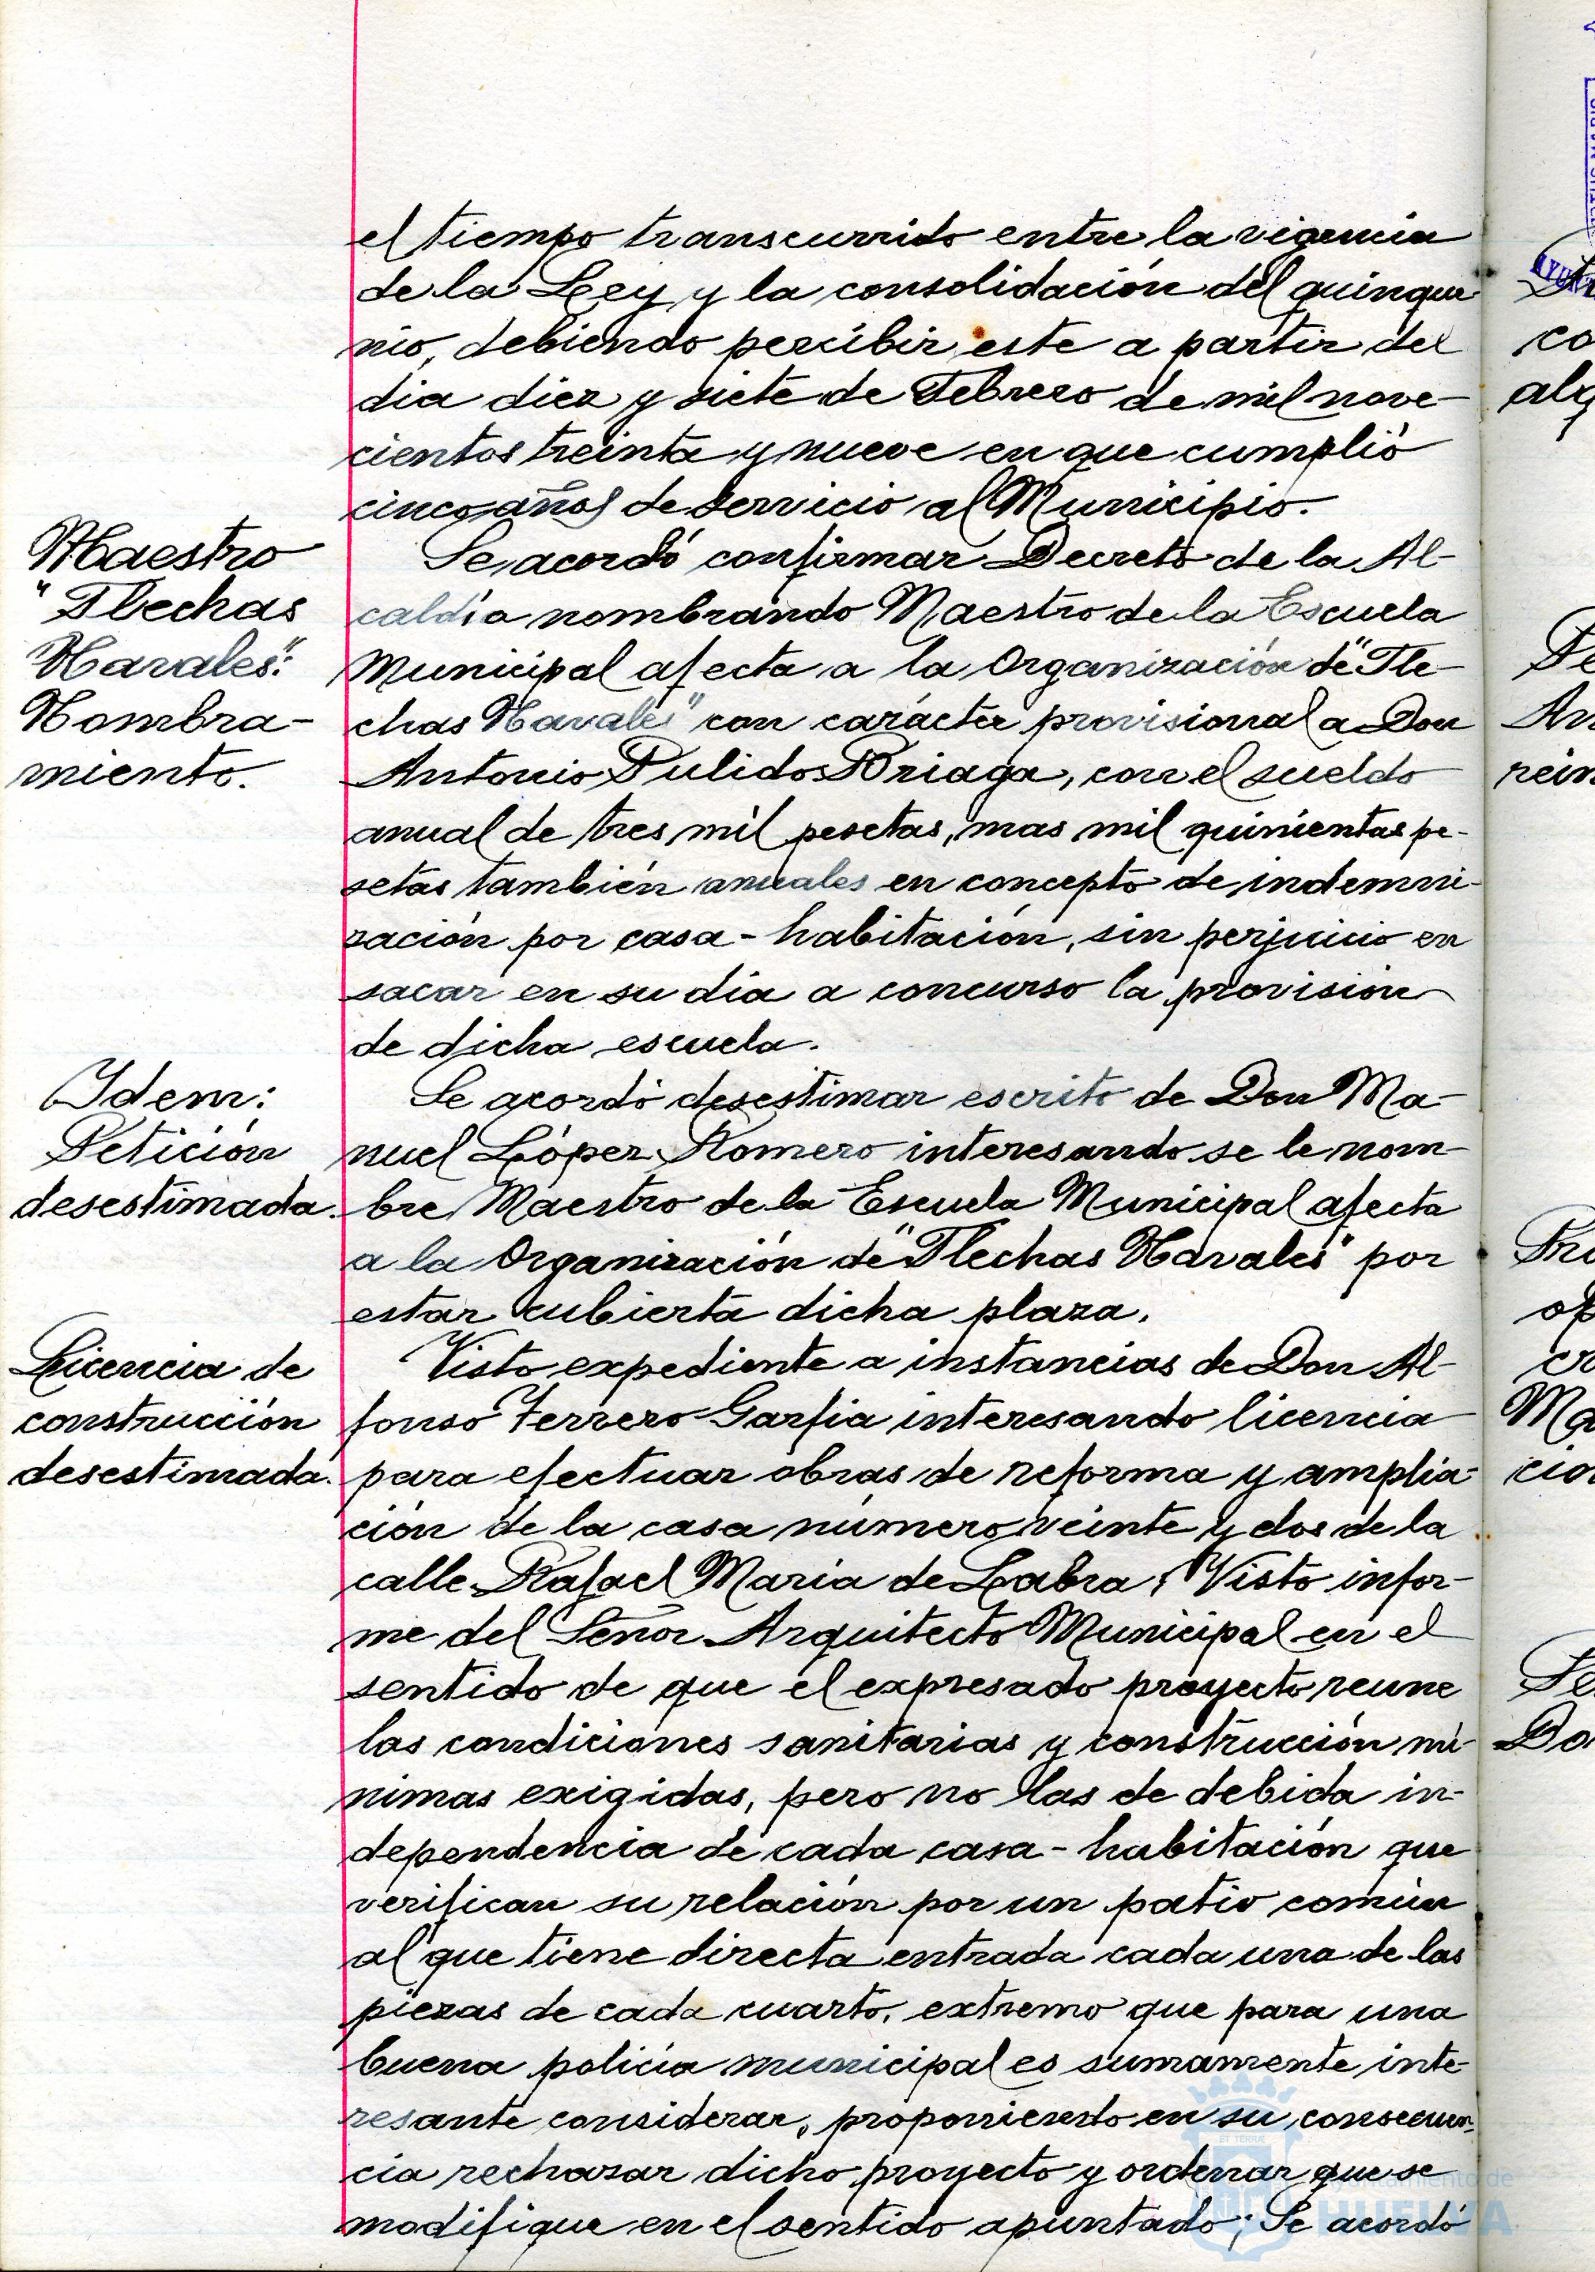 el tiempo transcurrido entre la vigencia
de la Ley y la consolidación del quinque-
nio, debiendo percibir este a partir del
dia diez y siete de Febrero de mil nove-
cientos treinta y nueve en que cumplió
cinco años de servicio al Municipio.
Maestro
"Flechas
Navales":
Nombra-
miento.
Se acordó confirmar Decreto de la Al-
caldía nombrando Maestro de la Escuela
Municipal afecta a la Organización de "Fle-
chas Navales" con carácter provisional a Don
Antonio Pulido Briaga, con el sueldo
anual de tres mil pesetas, mas mil quinientas pe-
setas también anuales en concepto de indemni-
zación por casa-habitación, sin perjuicio en
sacar en su día a concurso la provisión
de dicha escuela.
Idem:
Petición
desestimada.
Se acordó desestimar escrito de Don Ma-
nuel López Romero interesando se le nom-
bre Maestro de la Escuela Municipal afecta
a la Organización de "Flechas Navales" por
estar cubierta dicha plaza.
Licencia de
construcción
desestimada.
Visto expediente a instancias de Don Al-
fonso Ferrero Garfia interesando licencia
para efectuar obras de reforma y amplia-
ción de la casa número veinte y dos de la
calle Rafael María de Labra; Visto infor-
me del Señor Arquitecto Municipal en el
sentido de que el expresado proyecto reune
las condiciones sanitarias y construcción mí-
nimas exigidas, pero no las de debida in-
dependencia de cada casa-habitación que
verifican su relación por un patio común
al que tiene directa entrada cada una de las
piezas de cada cuarto, extremo que para una
buena policía municipal es sumamente inte-
resante considerar, proponiendo en su consecuen-
cia rechazar dicho proyecto y ordenar que se
modifique en el sentido apuntado; Se acordó
Ayuntamiento de
HUELVA